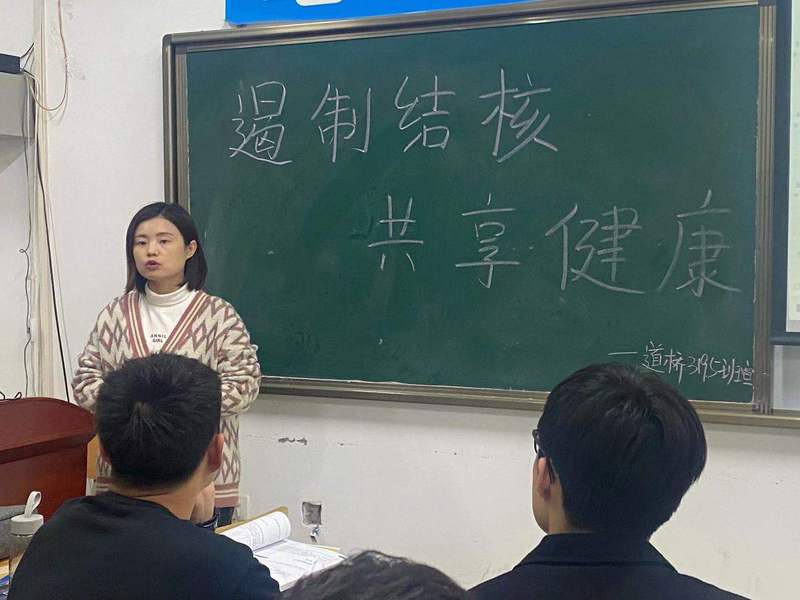 遏制结核
共享健康
一道桥3195班宣
JANNIE
GIRL